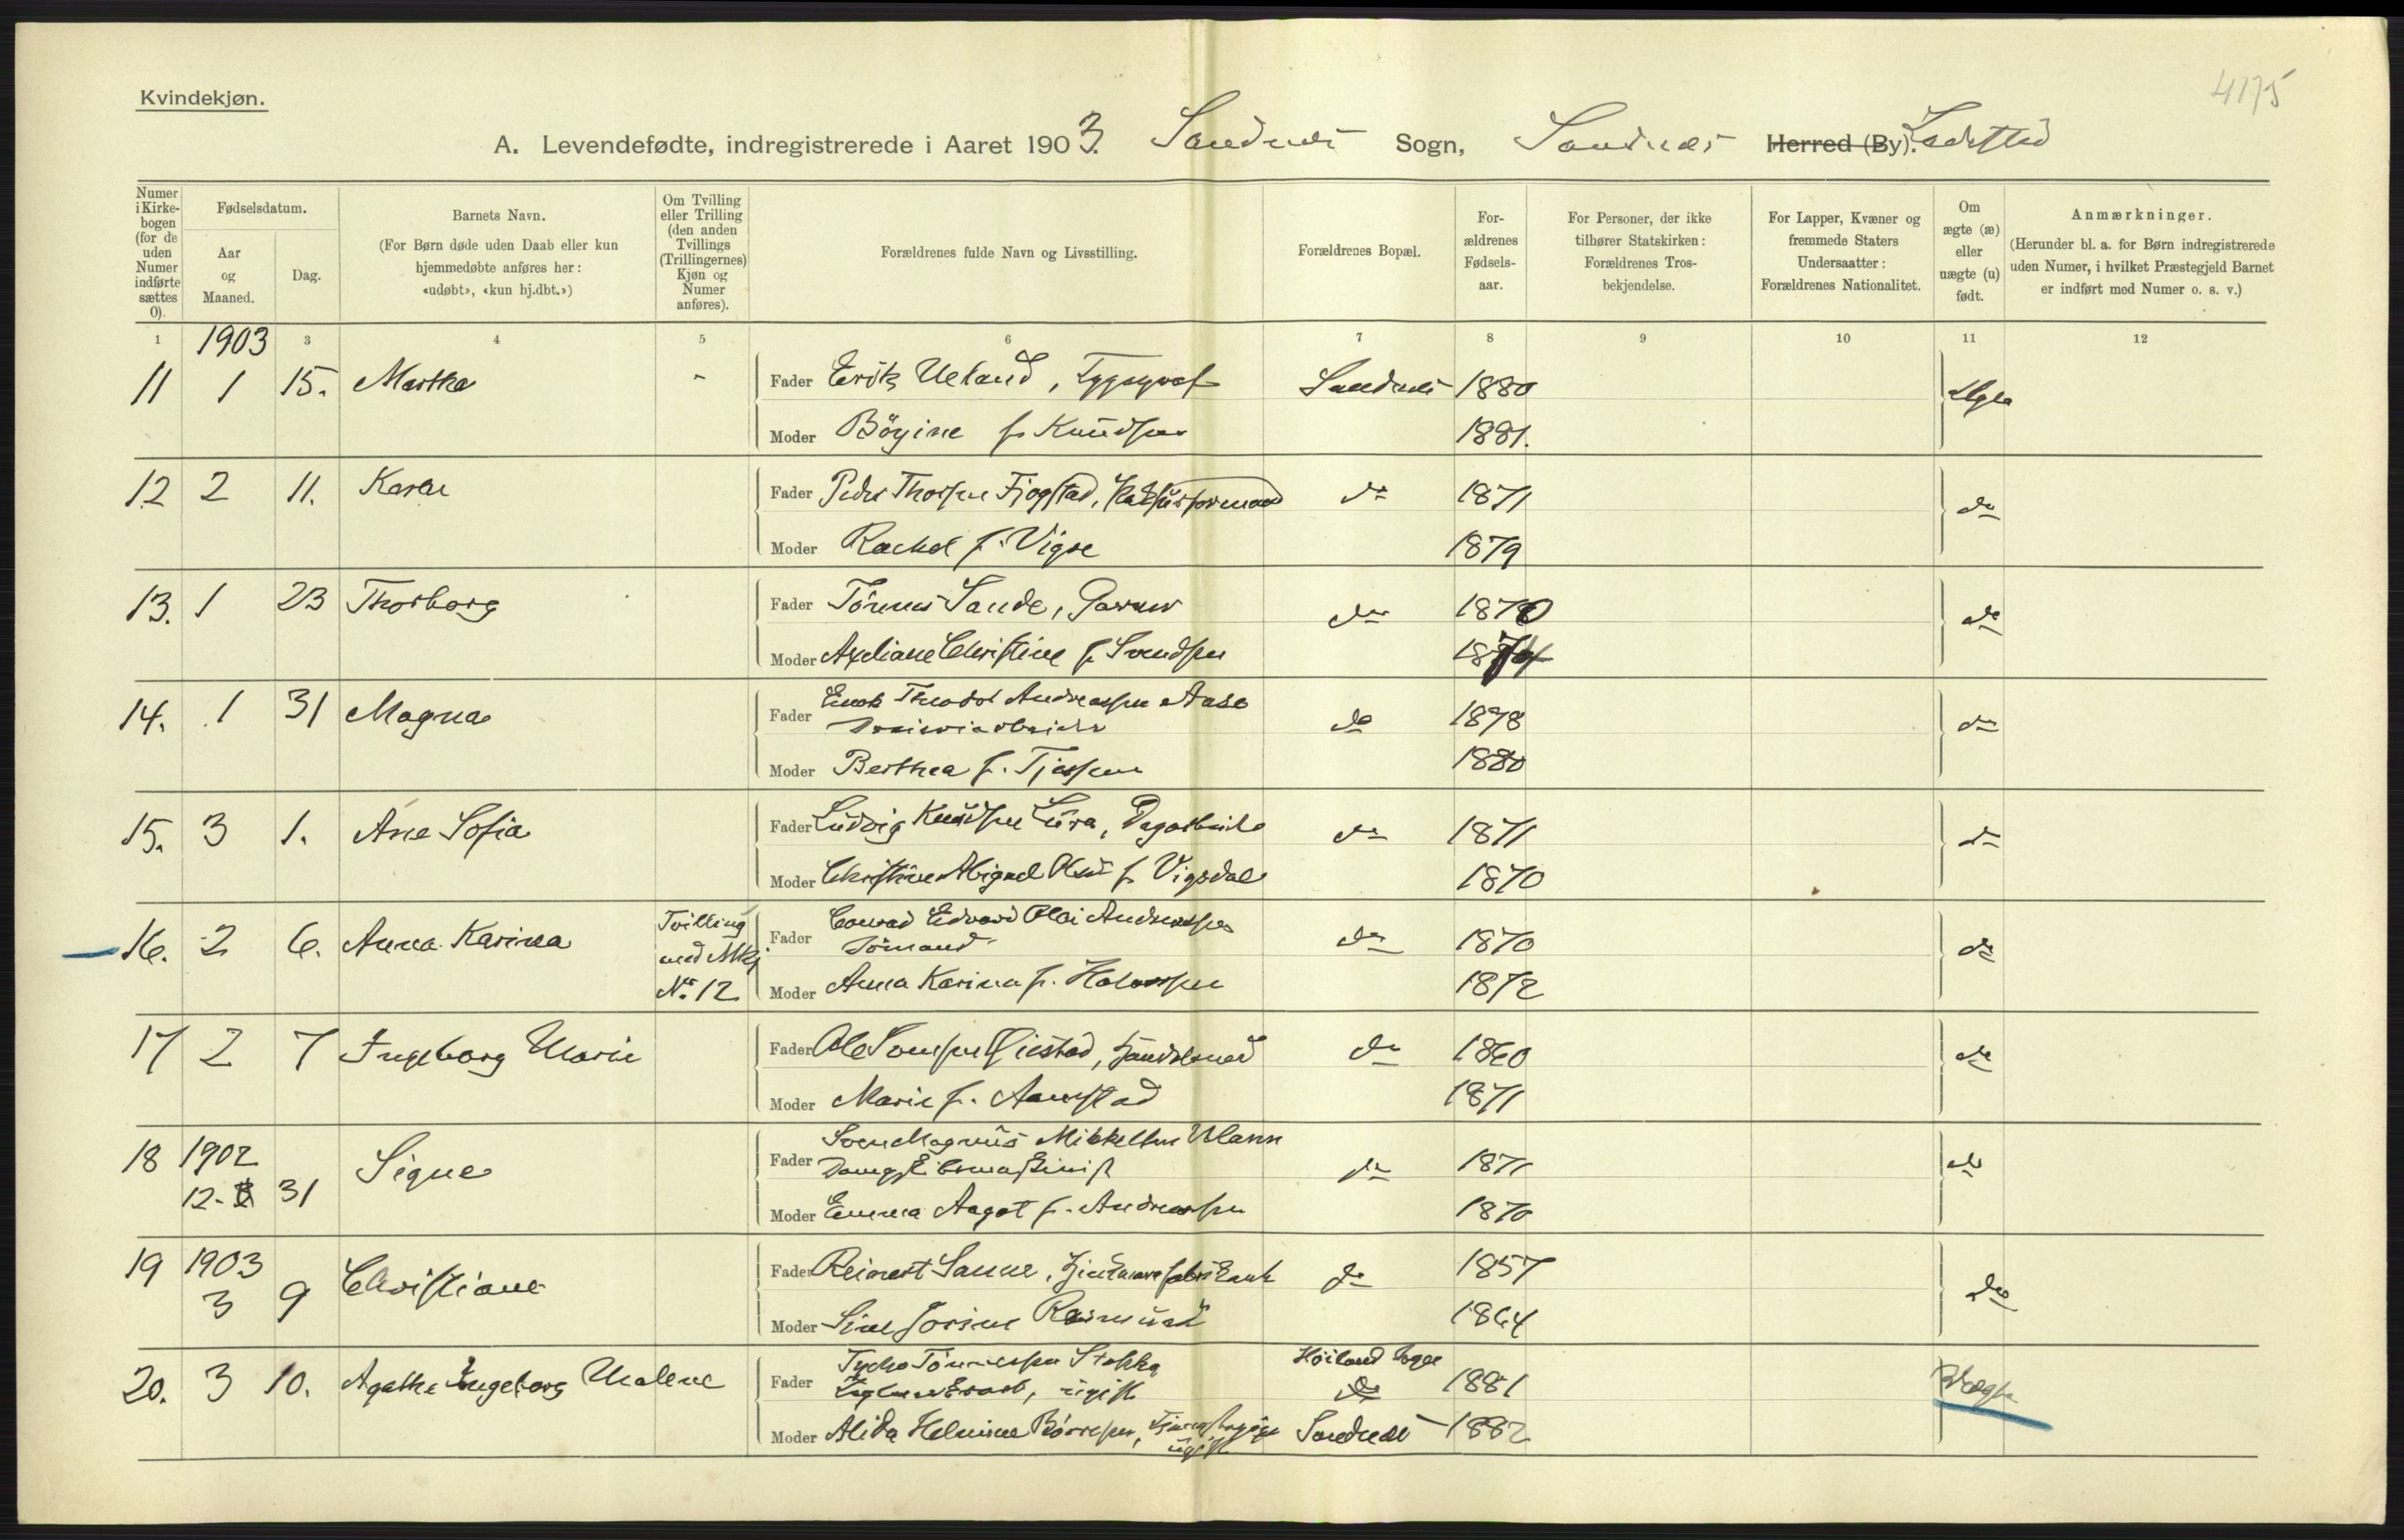 4175
Kvindekjøn.
A. Levendefødte, indregistrerede i Aaret 1903. Sandnes Sogn, Sandnes Herred (By). Ladested
Numer i Kirkebogen (for de uden Numer indførte sættes 0).
Fødselsdatum.
Aar og Maaned.
Dag.
Barnets Navn.
(For Børn døde uden Daab eller kun hjemmedøbte anføres her: «udøbt», «kun hj.dbt.»)
Om Tvilling eller Trilling (den anden Tvillings (Trillingernes) Kjøn og Numer anføres).
Forældrenes fulde Navn og Livsstilling.
Forældrenes Bopæl.
Forældrenes Fødselsaar.
For Personer, der ikke tilhører Statskirken: Forældrenes Trosbekjendelse.
For Lapper, Kvæner og fremmede Staters Undersaatter: Forældrenes Nationalitet.
Om ægte (æ) eller uægte (u) født.
Anmærkninger.
(Herunder bl. a. for Børn indregistrerede uden Numer, i hvilket Præstegjeld Barnet er indført med Numer o. s. v.)
1 1903 3 4 5 6 7 8 9 10 11 12
11 1 15. Martha - Fader Erik Ueland, Sandnes 1880 Ægte
Moder Börine f. Knudsen 1881.
12 2 11. Karen Fader Peder Thorsen Fjogstad, do 1871 do
Moder Rachel f. Vigre 1879
13. 1 23 Thorborg Fader Tönnes Sande, Garver do 1870 do
Moder Axeliane Christine f. Svendsen 1874
14. 1 31 Magna Fader Enok Theodor Andreassen Aase
do 1878 do
Moder Berthea f. Tjessem 1880
15. 3 1. Ane Sofia Fader Ludvig Knudsen Lura, Dagarbeider do 1871 do
Moder Christine Abigael Olsd f. Vigsdal 1870
16. 2 6. Anna Karina Tvilling med Mkj No. 12 Fader Conrad Edvard Olai Andreassen
Sömand do 1870 do
Moder Anna Karina f. Halvorsen 1872
17 2 7 Ingeborg Marie Fader Ole Svensen Qvestad, Handelsmd do 1860 do
Moder Marie f. Aamstad 1871
18 1902 12- 31 Signe Fader Sven Magnus Mikkelsen
Dampskibsmaskinist do 1871 do
Moder Emma Aagot f. Andreassen 1870
19 1903 3 9 Christiane Fader Reinert Sanne, do 1857 do
Moder Sine Jorine Rasmusd 1864
20. 3 10. Agathe Ingeborg Malene Fader Tycho Tönnessen Stokka Höiland Sogn
ugift do 1881 Uægte
Moder Alida Helmine Börresen, Tjenestepige Sandnes 1882
ugift